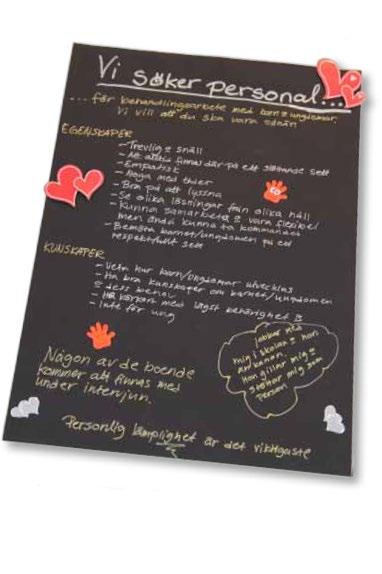 Vi söker personal...
...för behandlingsarbete med barn & ungdomar.
Vi vill att du ska vara sådan
EGENSKAPER
- Trevlig & snäll
- Att alltid finnas där på ett stöttande sett
- Empatisk
- Noga med tider
- Bra på att lyssna
- Se olika lösningar från olika håll
- Kunna samarbeta & vara flexibel
men ändå kunna ta kommandot
- Bemöta barnet/ungdomen på ett
respektfullt sett
KUNSKAPER
- Veta hur barn/ungdomar utvecklas
- Ha bra kunskaper om barnet/ungdomen
& dess behov
- Ha körkort med lägst behörighet B
- Inte för ung
Jobbar med
mig i skolan & hon
Hon gillar mig &
stöttar mig som
person
Någon av de boende
kommer att finnas med
under intervjun.
Personlig lämplighet är det viktigaste